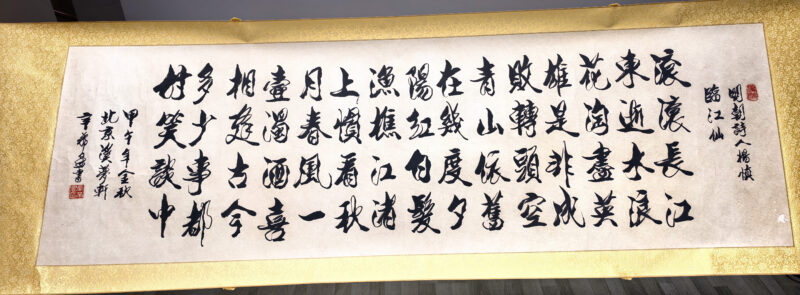 明朝詩人楊慎
臨江仙
滾滾長江
東逝水浪
花淘盡英
雄是非成
敗轉頭空
青山依舊
在幾度夕
陽紅白髮
漁樵江渚
上慣看秋
月春風一
壺濁酒喜
相逢古今
多少事都
付笑談中
甲午年金秋
北京夢軒
書